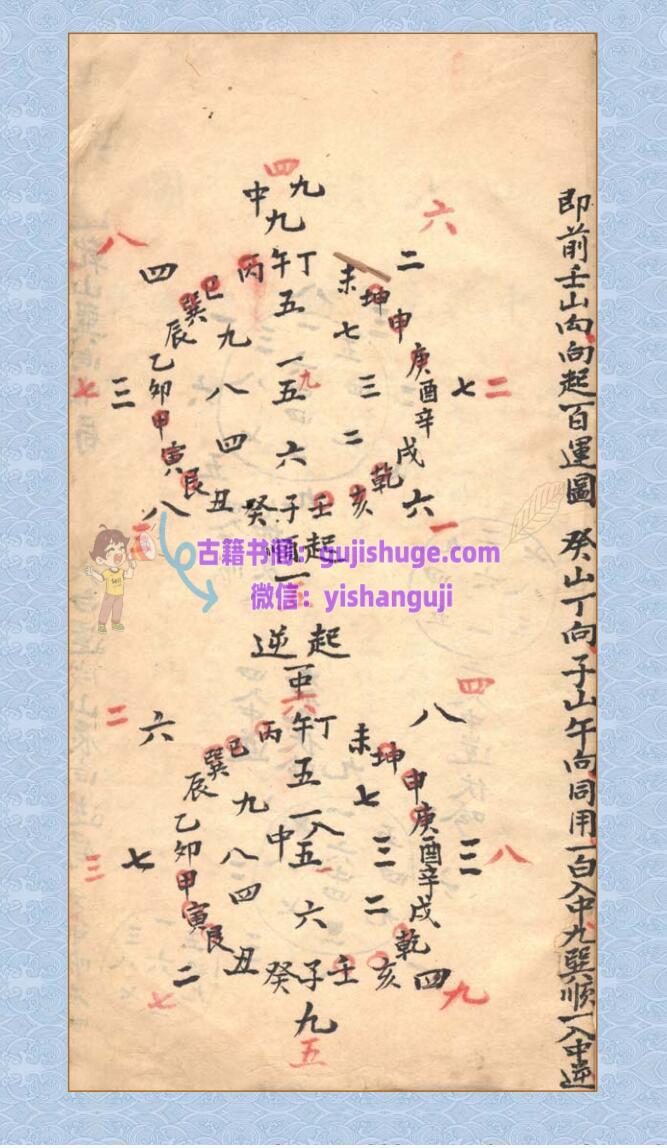 即前壬山丙向起一百運圖 癸山丁向子山午向同用一白入中九巽順一入中逆
四
中九
九
八
六
四
二
丙午丁
未坤申庚酉辛戌乾亥
壬子癸
丑艮寅甲卯乙辰巽巳
五
九
七
一
七三
八
五九
三
七二
四
二
六
八
六一
順起
一
古籍书阁：gujishuge.com
微信：yishanguji
逆起
一中
六
四
八
二六
丙午丁
未坤申庚酉辛戌乾亥
壬子癸
丑艮寅甲卯乙辰巽巳
五
九
七
一入
中
三七
八
五一
三
三八
四
二
六
二
七
四九
九
五